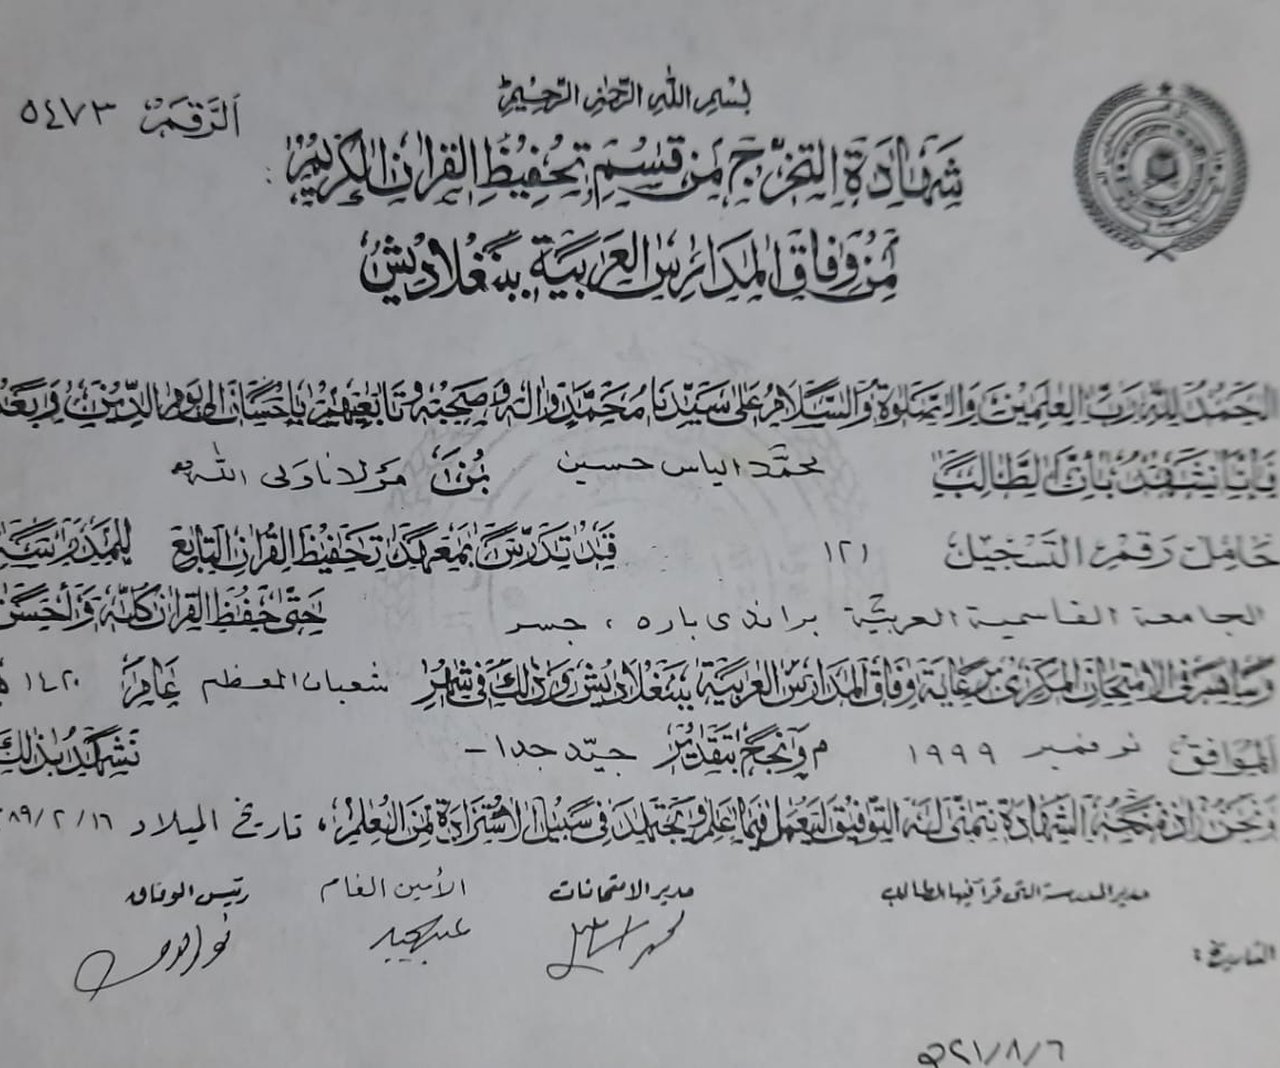 بسم الله الرحمن الرحيم
الرقم ٥٤٧٣
شهادة التخرج من قسم تحفيظ القرآن الكريم :
من وفاق المدارس العربية ببنغلاديش
الحمد لله رب العلمين والصلوة والسلام على سيدنا محمد واله وصحبه وتابعيهم باحسان الى يوم الدين وبعد
فاننا نشهد بأن الطالب محمد الياس حسين بن مولانا ولى الله
حامل رقم التسجيل ١٢١ قد تدرس بمعهد تحفيظ القران التابع للمدرسة
الجامعة القاسمية العربية براندى باره ، جسر حتى حفظ القران كله وأحسن
وساهم في الامتحان المركزي من رعاية وفاق المدارس العربية ببنغلاديش وذلك في شهر شعبان المعظم عام ١٤٢٠ ه
الموافق نوفمبر ١٩٩٩ م ونجح بتقدير جيّد جدا - نشهد بذلك
ونحن إذ نمنحه الشهادة نتمنى له التوفيق ليعمل فيما علم ويجتهد في سبيل الاستزادة من العلم ، تاريخ الميلاد ٨٩/٢/١٦
مدير المدرسة التى قرأ فيها الطالب مدير الامتحانات الأمين العام رئيس الوفاق
التاريخ :
٢١/٨/٦